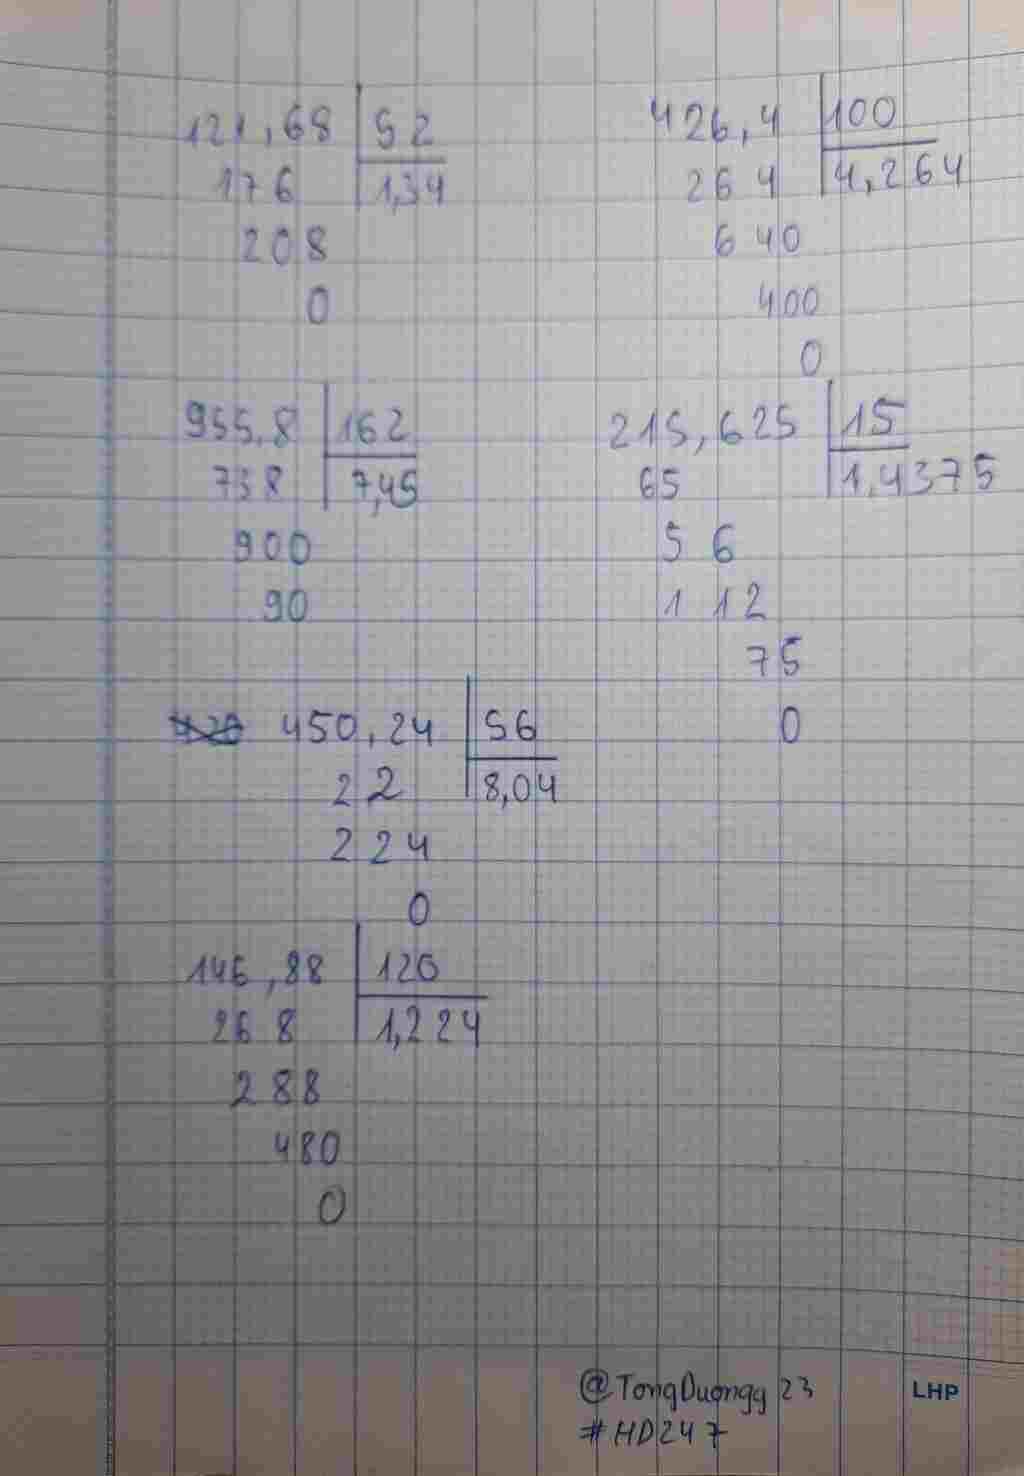 121,68 52
176 1,34
208
0
426,4 100
264 4,264
640
400
0
955,8 162
738 7,45
900
90
215,625 15
65 1,4375
56
112
75
0
450,24 56
22 8,04
224
0
146,88 120
268 1,224
288
480
0
@TongDuongg23
#HD247
LHP